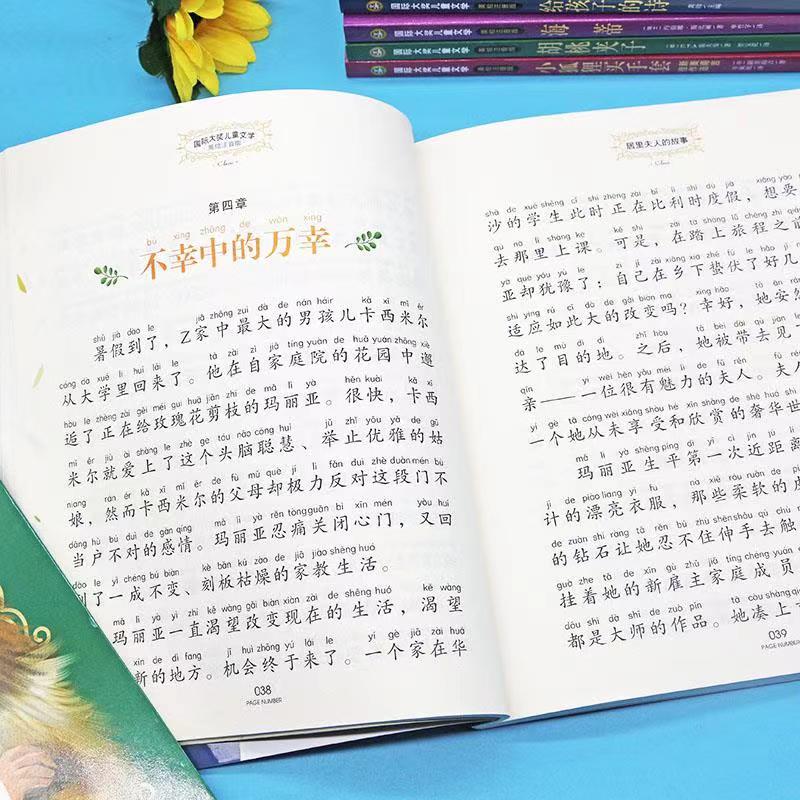 给孩子的诗
国际大奖儿童文学
海蒂
国际大奖儿童文学
胡桃夹子
国际大奖儿童文学
小狐狸买手套
国际大奖儿童文学
国际大奖儿童文学
美绘注音版
第四章
bú xìng zhōng de wàn xìng
不幸中的万幸
shǔ jià dào le jiā zhōng zuì dà de nán háir kǎ xī mǐ ěr
暑假到了，Z家中最大的男孩儿卡西米尔
cóng dà xué lǐ huí lái le tā zài zì jiā tíng yuàn de huā yuán zhōng xiè
从大学里回来了。他在自家庭院的花园中邂
hòu le zhèng zài gěi méi gui huā jiǎn zhī de mǎ lì yà hěn kuài kǎ xī
逅了正在给玫瑰花剪枝的玛丽亚。很快，卡西
mǐ ěr jiù ài shàng le zhè ge tóu nǎo cōng huì jǔ zhǐ yōu yǎ de gū
米尔就爱上了这个头脑聪慧、举止优雅的姑
niang rán ér kǎ xī mǐ ěr de fù mǔ què jí lì fǎn duì zhè duàn mén bù
娘，然而卡西米尔的父母却极力反对这段门不
dāng hù bú duì de gǎn qíng mǎ lì yà rěn tòng guān bì xīn mén yòu huí
当户不对的感情。玛丽亚忍痛关闭心门，又回
dào le yì chéng bú biàn kè bǎn kū zào de jiā jiào shēng huó
到了一成不变、刻板枯燥的家教生活。
mǎ lì yà yì zhí kě wàng gǎi biàn xiàn zài de shēng huó kě wàng
玛丽亚一直渴望改变现在的生活，渴望
xīn de dì fang jī huì zhōng yú lái le yí gè jiā zài huá
新的地方。机会终于来了。一个家在华
038
PAGE NUMBER
居里夫人的故事
shā de xué shēng cǐ shí zhèng zài bǐ lì shí dù jià xiǎng yào
沙的学生此时正在比利时度假，想要
qù nà lǐ shàng kè kě shì zài tà shàng lǚ chéng zhī qián
去那里上课。可是，在踏上旅程之前
yà què yóu yù le zì jǐ zài xiāng xià zhé fú le hǎo jǐ
亚却犹豫了：自己在乡下蛰伏了好几
shì yìng rú cǐ dà de gǎi biàn ma xìng hǎo tā ān rán
适应如此大的改变吗？幸好，她安然
dá le mù dì dì zhī hòu tā bèi dài qù jiàn le
达了目的地。之后，她被带去见了
yí wèi hěn yǒu mèi lì de fū rén fū rén
亲——一位很有魅力的夫人。夫人
yí gè tā cóng wèi xiǎng shòu hé xīn shǎng de shē huá shì
一个她从未享受和欣赏的奢华世
mǎ lì yà shēng píng dì yī cì jìn jù lí
玛丽亚生平第一次近距离
jì de piào liang yī fu nà xiē róu ruǎn de
计的漂亮衣服，那些柔软的
de zuàn shí ràng tā rěn bú zhù shēn shǒu qù chù
的钻石让她忍不住伸手去触
guà zhe tā de xīn gù zhǔ jiā tíng chéng yuán
挂着她的新雇主家庭成员
dōu shì dà shī de zuò pǐn tā còu shàng
都是大师的作品。她凑上
039
PAGE NUMBER